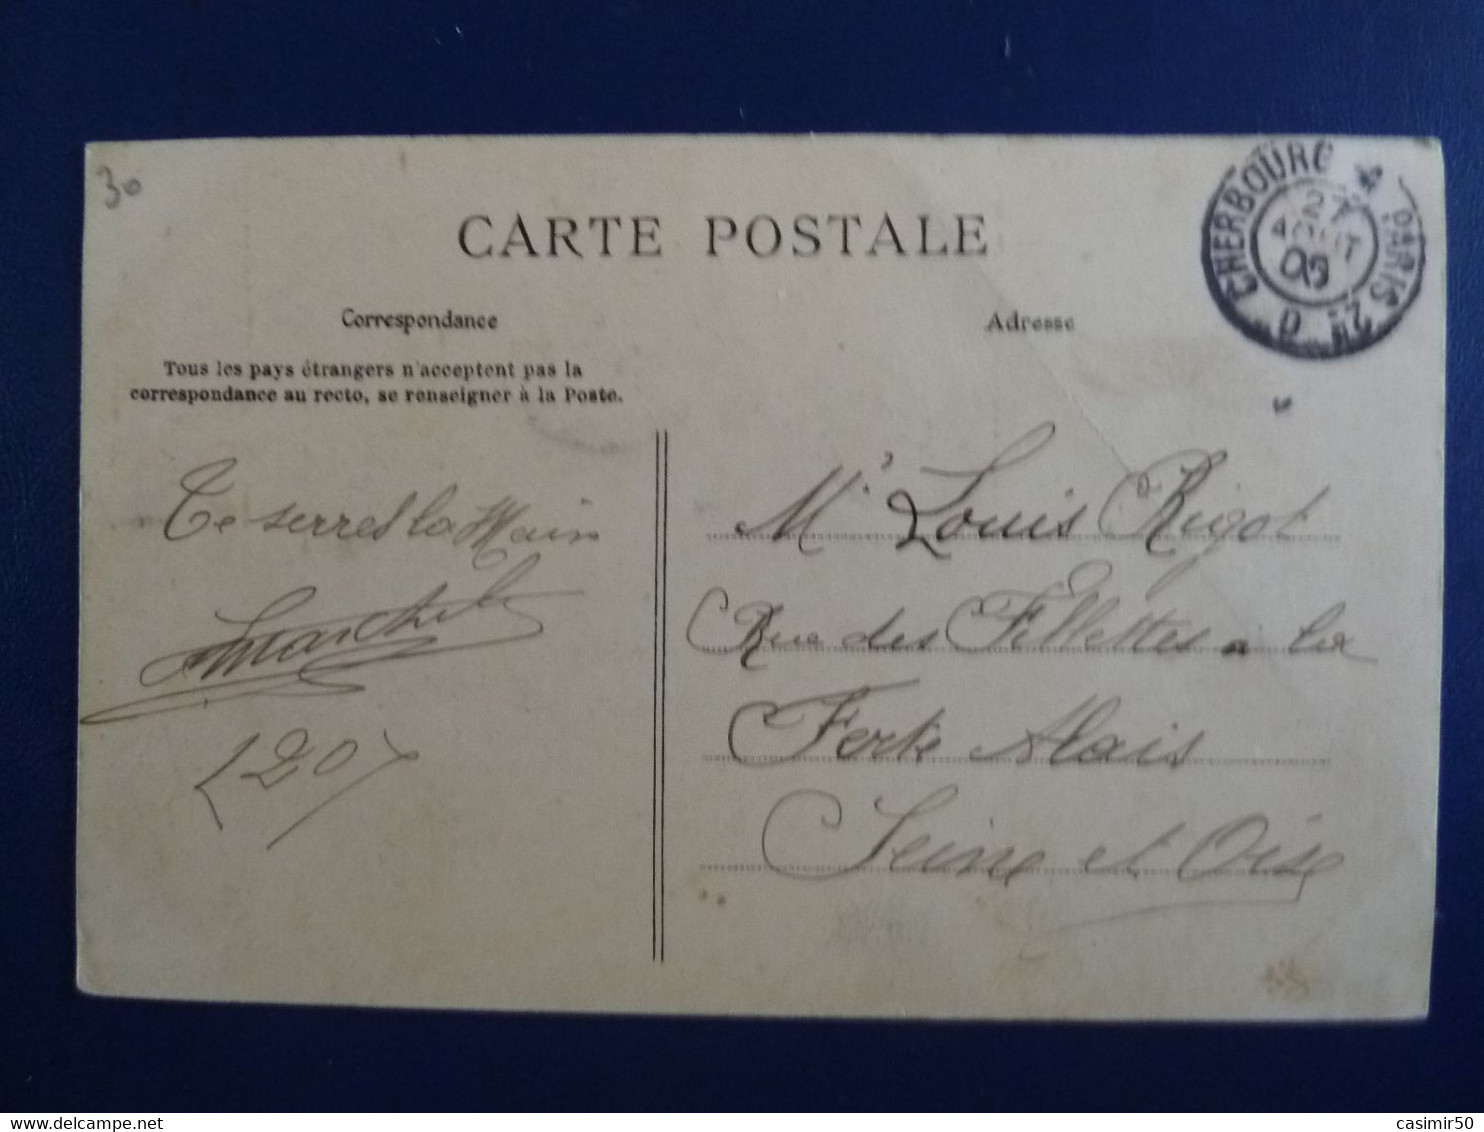 30
CARTE POSTALE
CHERBOURG A PARIS 2º D
27
AOUT
05
Correspondance
Adresse
Tous les pays étrangers n'acceptent pas la
correspondance au recto, se renseigner à la Poste.
Te serres la Main
Marchel
(20)
Mr Louis Rigot
Rue des Fillettes a la
Ferte Alais
Seine et Oise
www.delcampe.net
casimir50